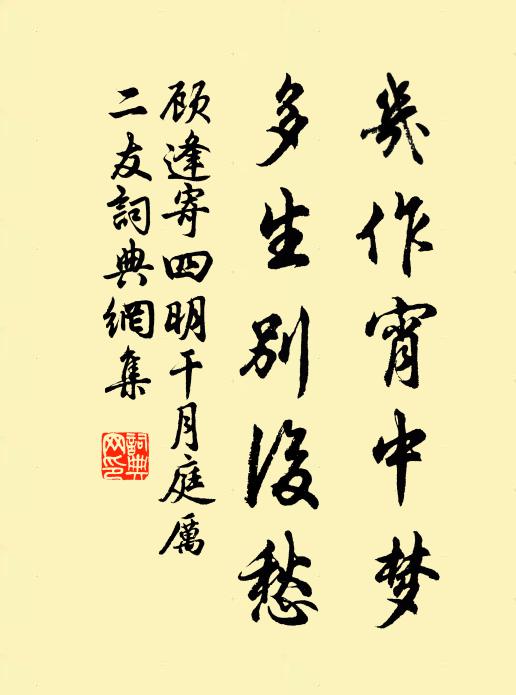 幾作宵中梦
多生別後愁
顾逢寄四明干月庭厲
二友詞典網集
詞典网印